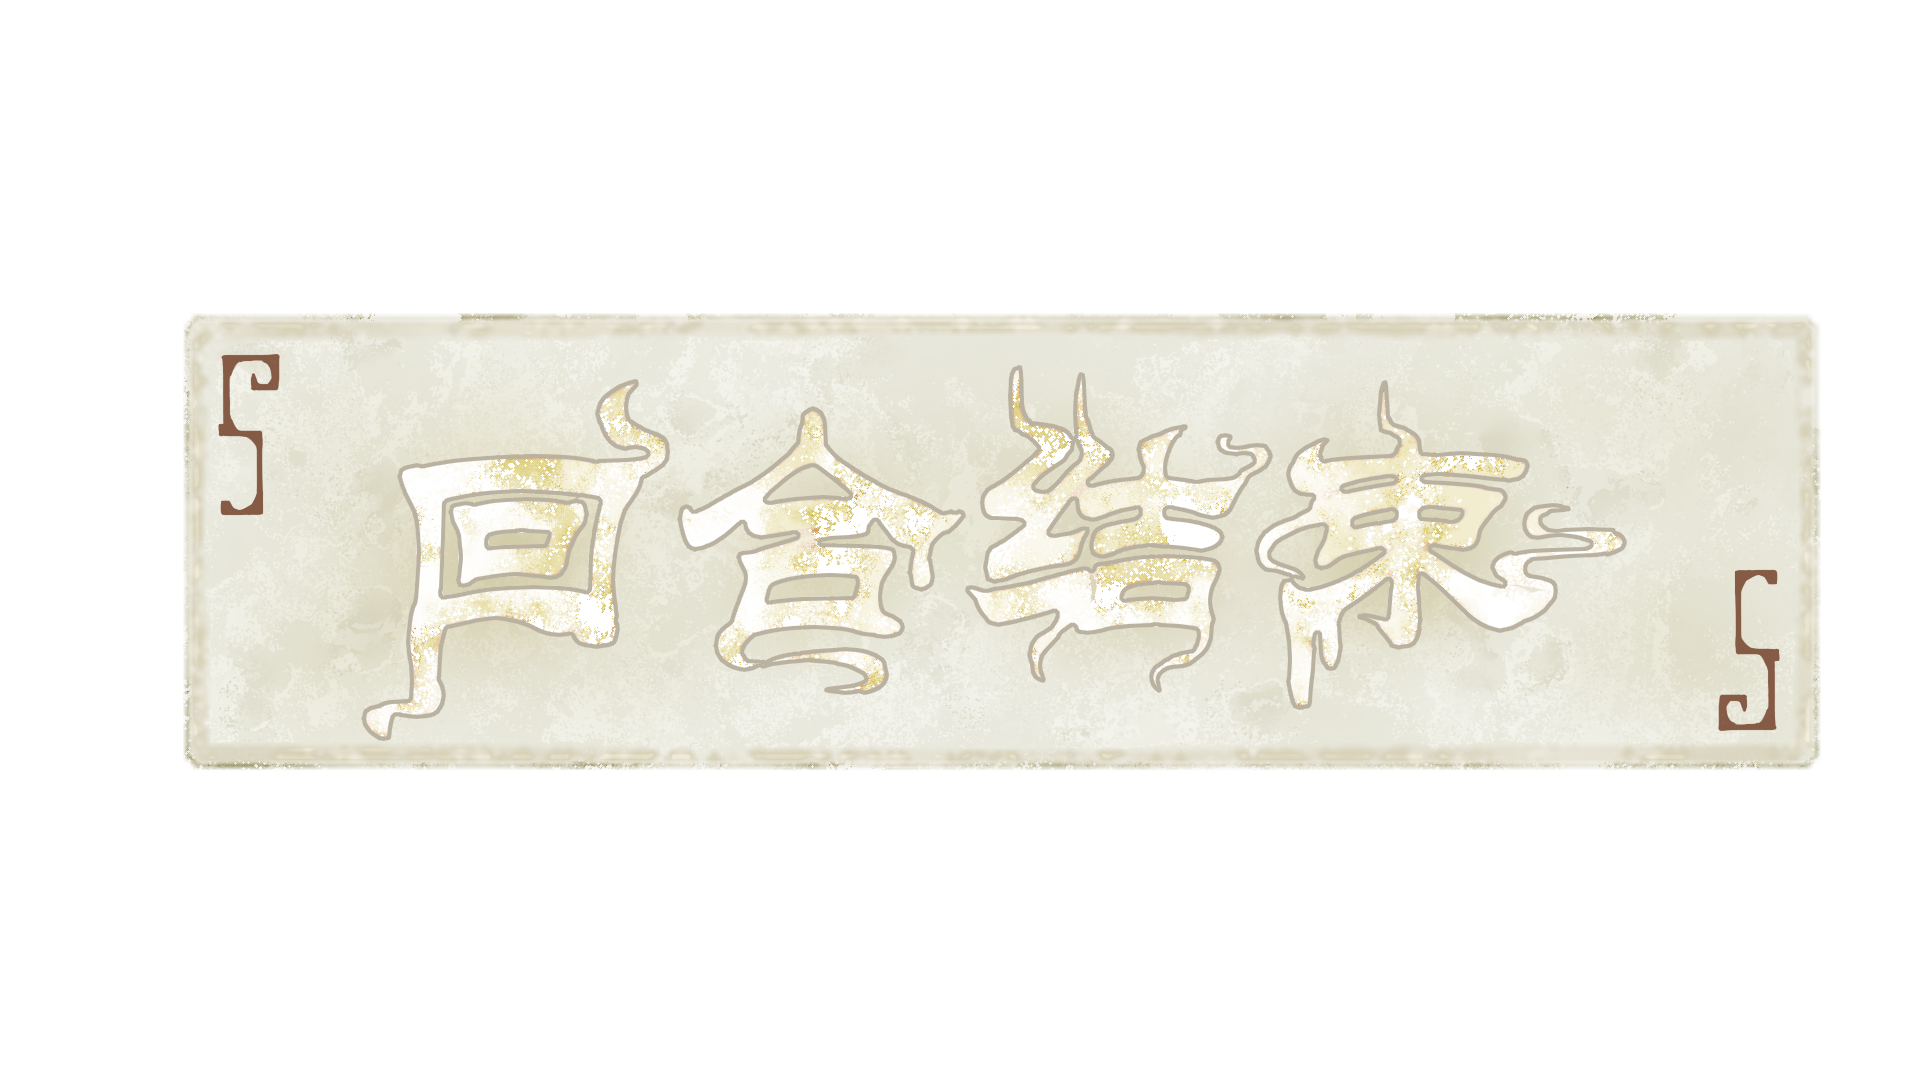 回合结束